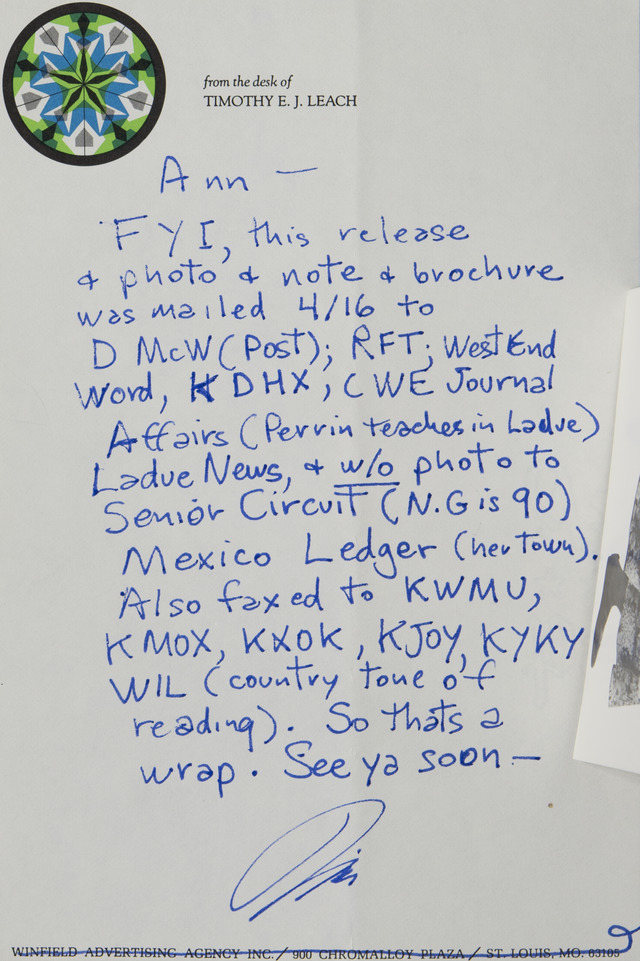 from the desk of
TIMOTHY E. J. LEACH
Ann —
FYI, this release
& photo & note & brochure
was mailed 4/16 to
D McW (Post); RFT; West End
Word, KDHX; CWE Journal
Affairs (Perrin teaches in Ladue)
Ladue News, & w/o photo to
Senior Circuit (N.G is 90)
Mexico Ledger (her town).
Also faxed to KWMU,
KMOX, KXOK, KJOY, KYKY
WIL (country tone of
reading). So thats a
wrap. See ya soon —
Tim
WINFIELD ADVERTISING AGENCY INC. / 900 CHROMALLOY PLAZA / ST. LOUIS, MO. 63105